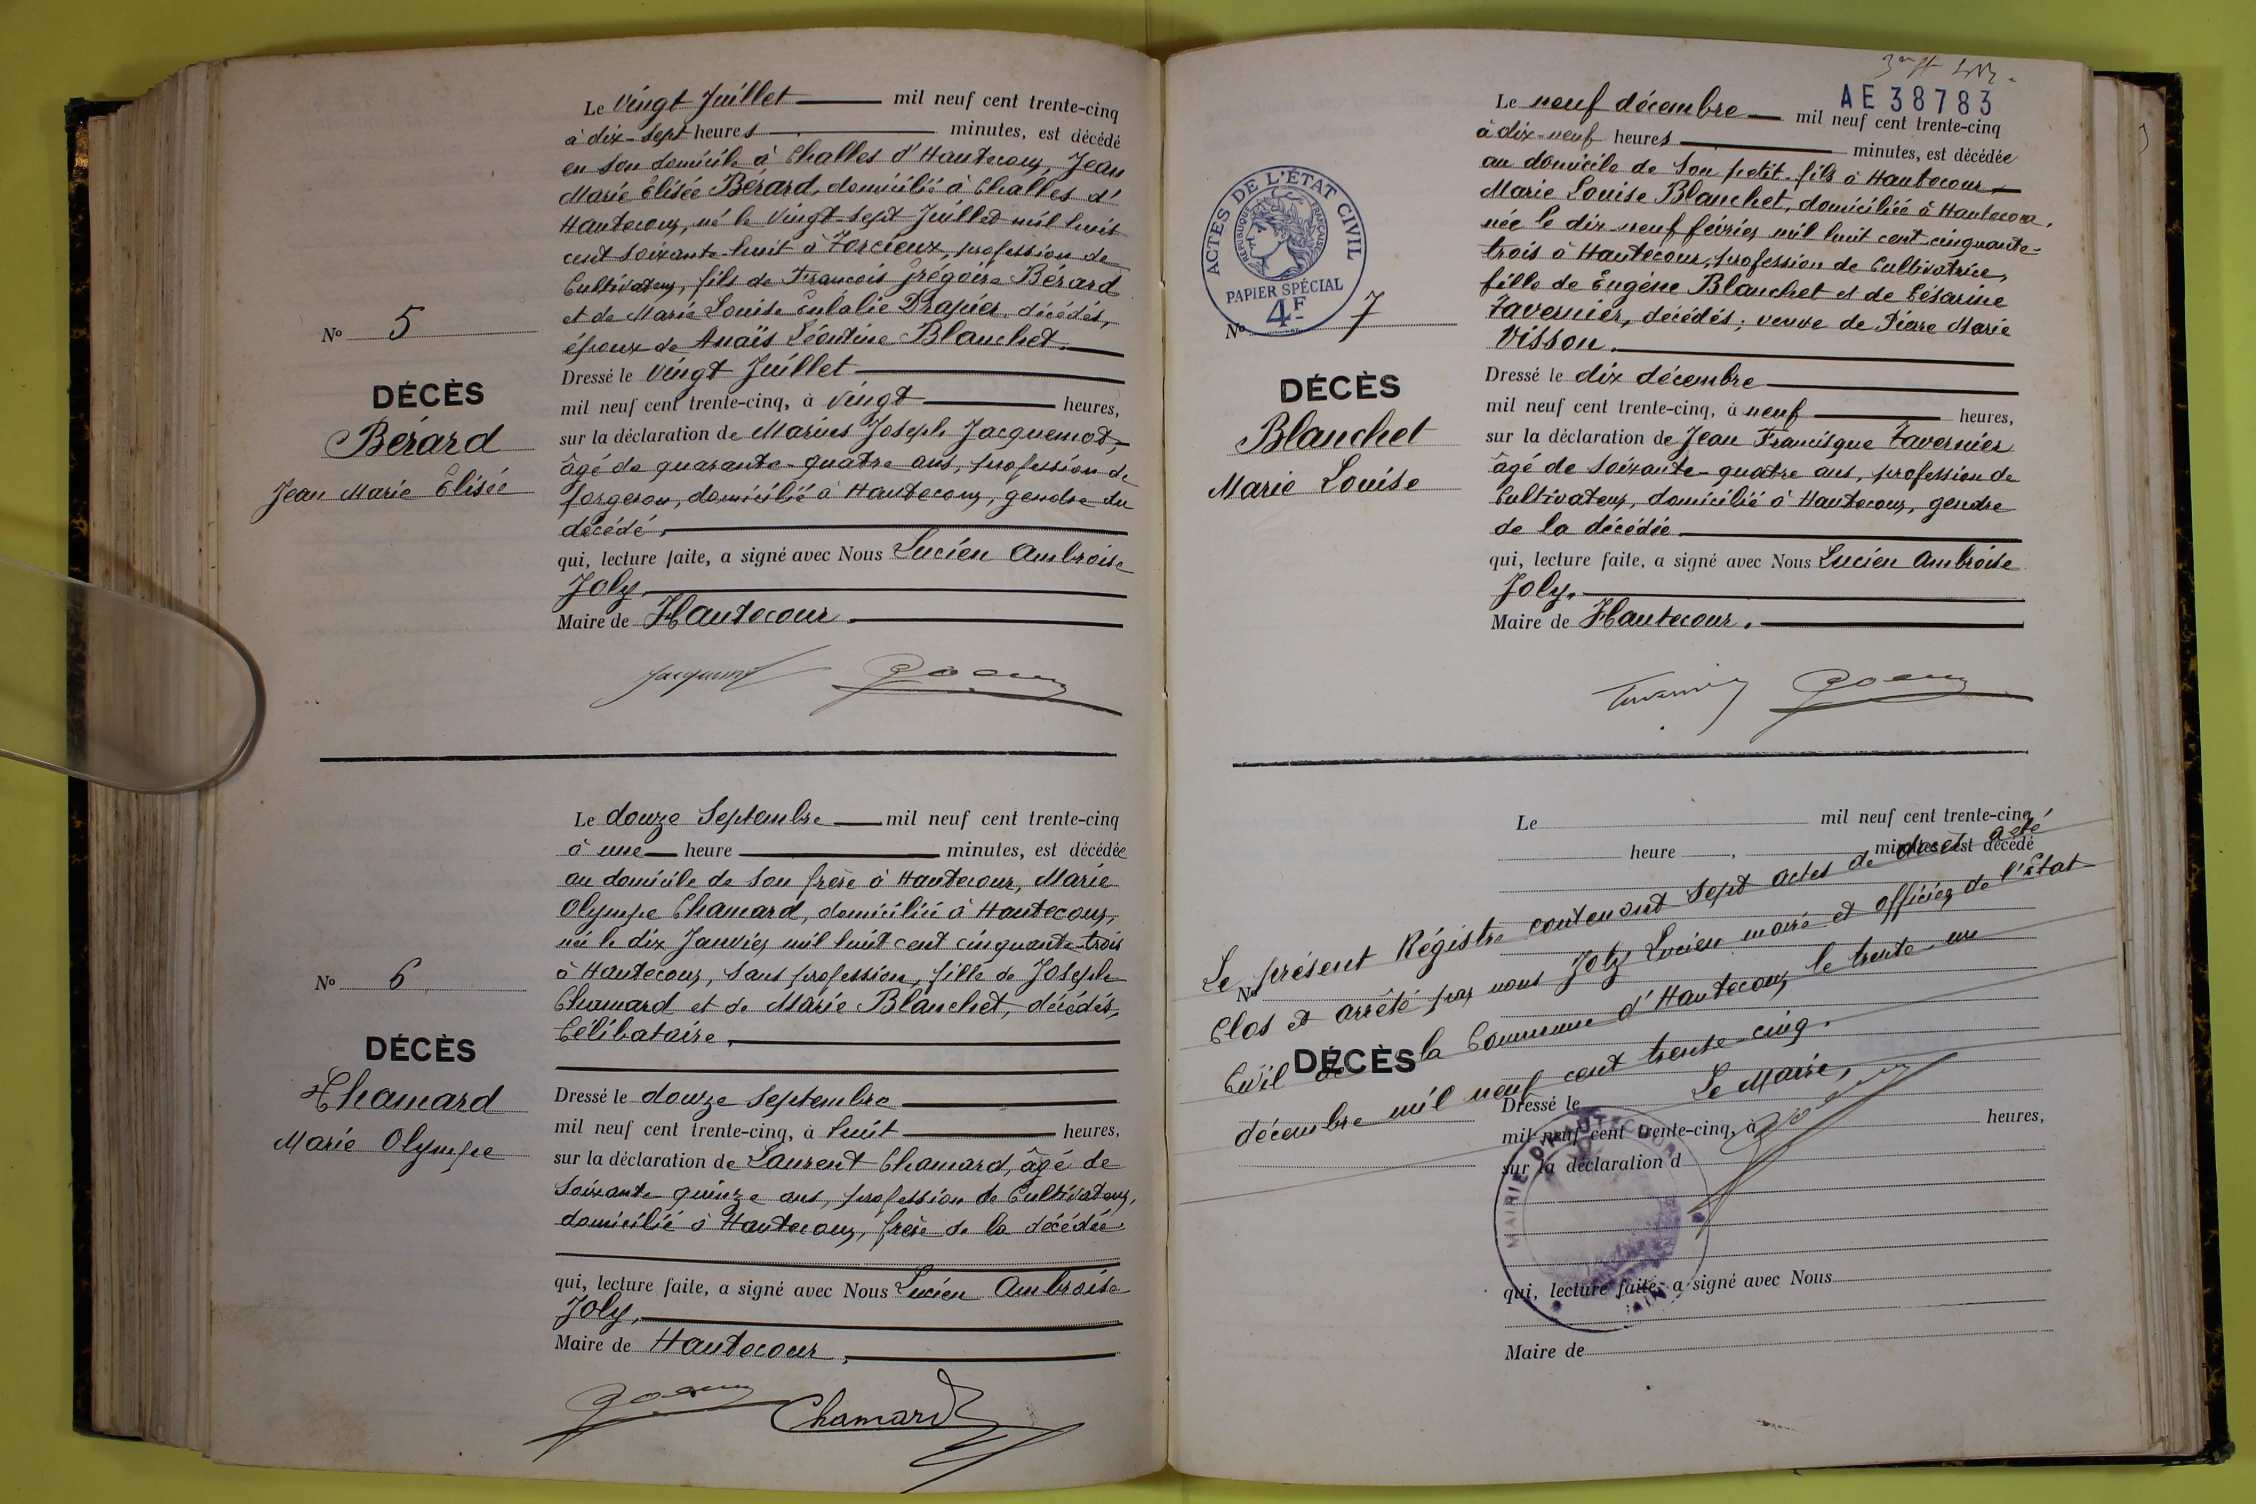 Le vingt Juillet mil neuf cent trente-cinq
à dix-sept heures minutes, est décédé
en son domicile à Challes d'Hautecour, Jean
Marie Elisée Bérard, domicilié à Challes d'
Hautecour, né le vingt-sept Juillet mil huit
cent soixante-huit à Forcieux, profession de
Cultivateur, fils de François Grégoire Bérard
et de Marie Louise Eulalie Drapier, décédés,
époux de Anaïs Léontine Blanchet.
Dressé le vingt Juillet
mil neuf cent trente-cinq, à vingt heures,
sur la déclaration de Marius Joseph Jacquemot,
âgé de quarante-quatre ans, profession de
forgeron, domicilié à Hautecour, gendre du
décédé,
qui, lecture faite, a signé avec Nous Lucien Ambroise
Joly,
Maire de Hautecour.
No 5
DÉCÈS
Bérard
Jean Marie Elisée
Le douze Septembre mil neuf cent trente-cinq
à une heure minutes, est décédée
au domicile de son frère à Hautecour, Marie
Olympe Chamard, domiciliée à Hautecour,
née le dix Janvier mil huit cent cinquante-trois
à Hautecour, sans profession, fille de Joseph
Chamard et de Marie Blanchet, décédés,
Célibataire.
Dressé le douze Septembre
mil neuf cent trente-cinq, à huit heures,
sur la déclaration de Laurent Chamard, âgé de
soixante-quinze ans, profession de Cultivateur,
domicilié à Hautecour, frère de la décédée.
qui, lecture faite, a signé avec Nous Lucien Ambroise
Joly,
Maire de Hautecour.
Chamard
No 6
DÉCÈS
Chamard
Marie Olympe
AE 38783
Le neuf décembre mil neuf cent trente-cinq
à dix-neuf heures minutes, est décédée
au domicile de son petit-fils à Hautecour
Marie Louise Blanchet, domiciliée à Hautecour,
née le dix neuf février mil huit cent cinquante-
trois à Hautecour, profession de Cultivatrice,
fille de Eugène Blanchet et de Césarine
Tavernier, décédés; veuve de Piere Marie
Visson.
Dressé le dix décembre
mil neuf cent trente-cinq, à neuf heures,
sur la déclaration de Jean Francisque Tavernier
âgé de soixante-quatre ans, profession de
Cultivateur, domicilié à Hautecour, gendre
de la décédée
qui, lecture faite, a signé avec Nous Lucien Ambroise
Joly,
Maire de Hautecour.
ACTES DE L'ÉTAT CIVIL
RÉPUBLIQUE FRANÇAISE
PAPIER SPÉCIAL
4F
No 7
DÉCÈS
Blanchet
Marie Louise
Le mil neuf cent trente-cinq
heure , minutes, est décédé
No
DÉCÈS
Dressé le
mil neuf cent trente-cinq, à heures,
sur la déclaration d
qui, lecture faite, a signé avec Nous
Maire de
Le présent Régistre contenant sept actes de décès a été
Clos et arrêté par nous Joly Lucien maire et officier de l'état
Civil de la Commune d'Hautecour le trente-un
décembre mil neuf cent trente-cinq.
Le Maire,
MAIRIE D'HAUTECOUR